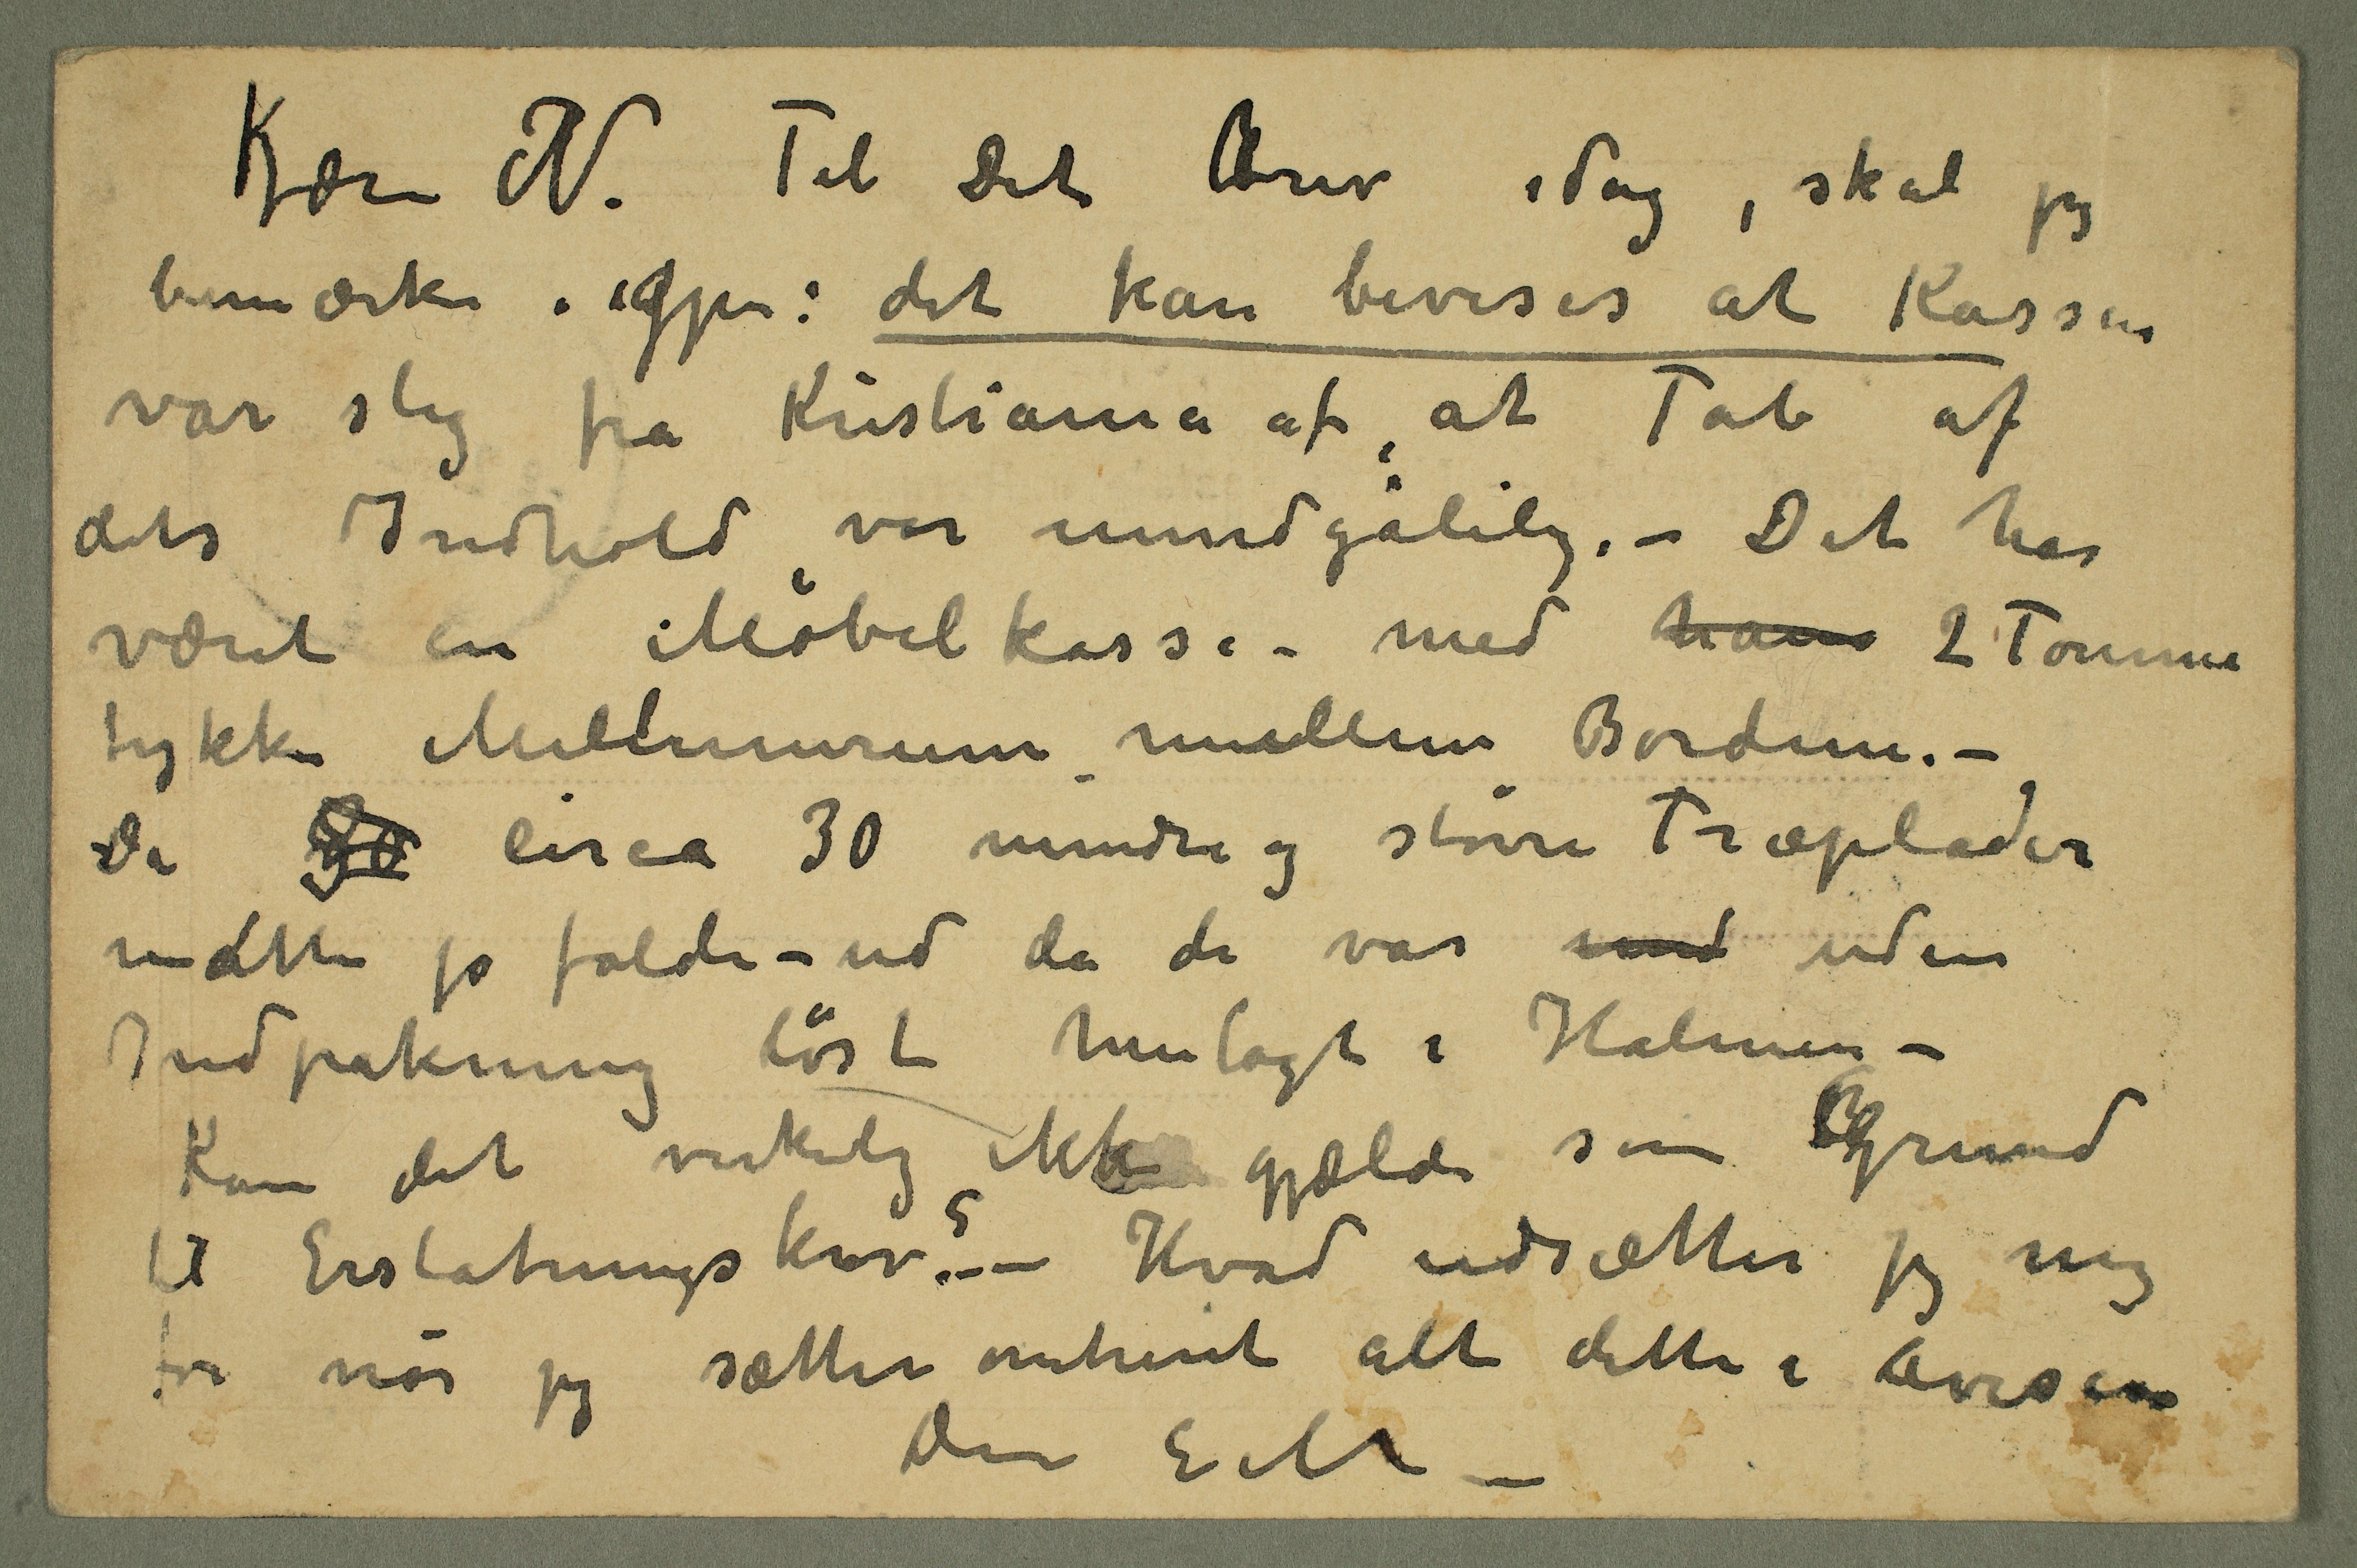 Kjære N. Til Dit Brev idag, skal jeg
bemærke igjen: det kan bevises at Kassen
var slig fra Kristiania af, at Tab af
dets Indhold var uundgålilig. – Det har
været en Möbelkasse – med 2 Tomme
tykke Mellemrum mellem Bordene. –
De circa 30 mindre og större Træplader
måtte jo falde – ud da de var uden
Indpakning löst henlagt i Halmen –
Kan det virkelig ikke gjælde som Grund
til Erstatningskrav? – Hvad udsætter jeg mig
for når jeg sætter omtrent alt dette i Avisen
Din E M –